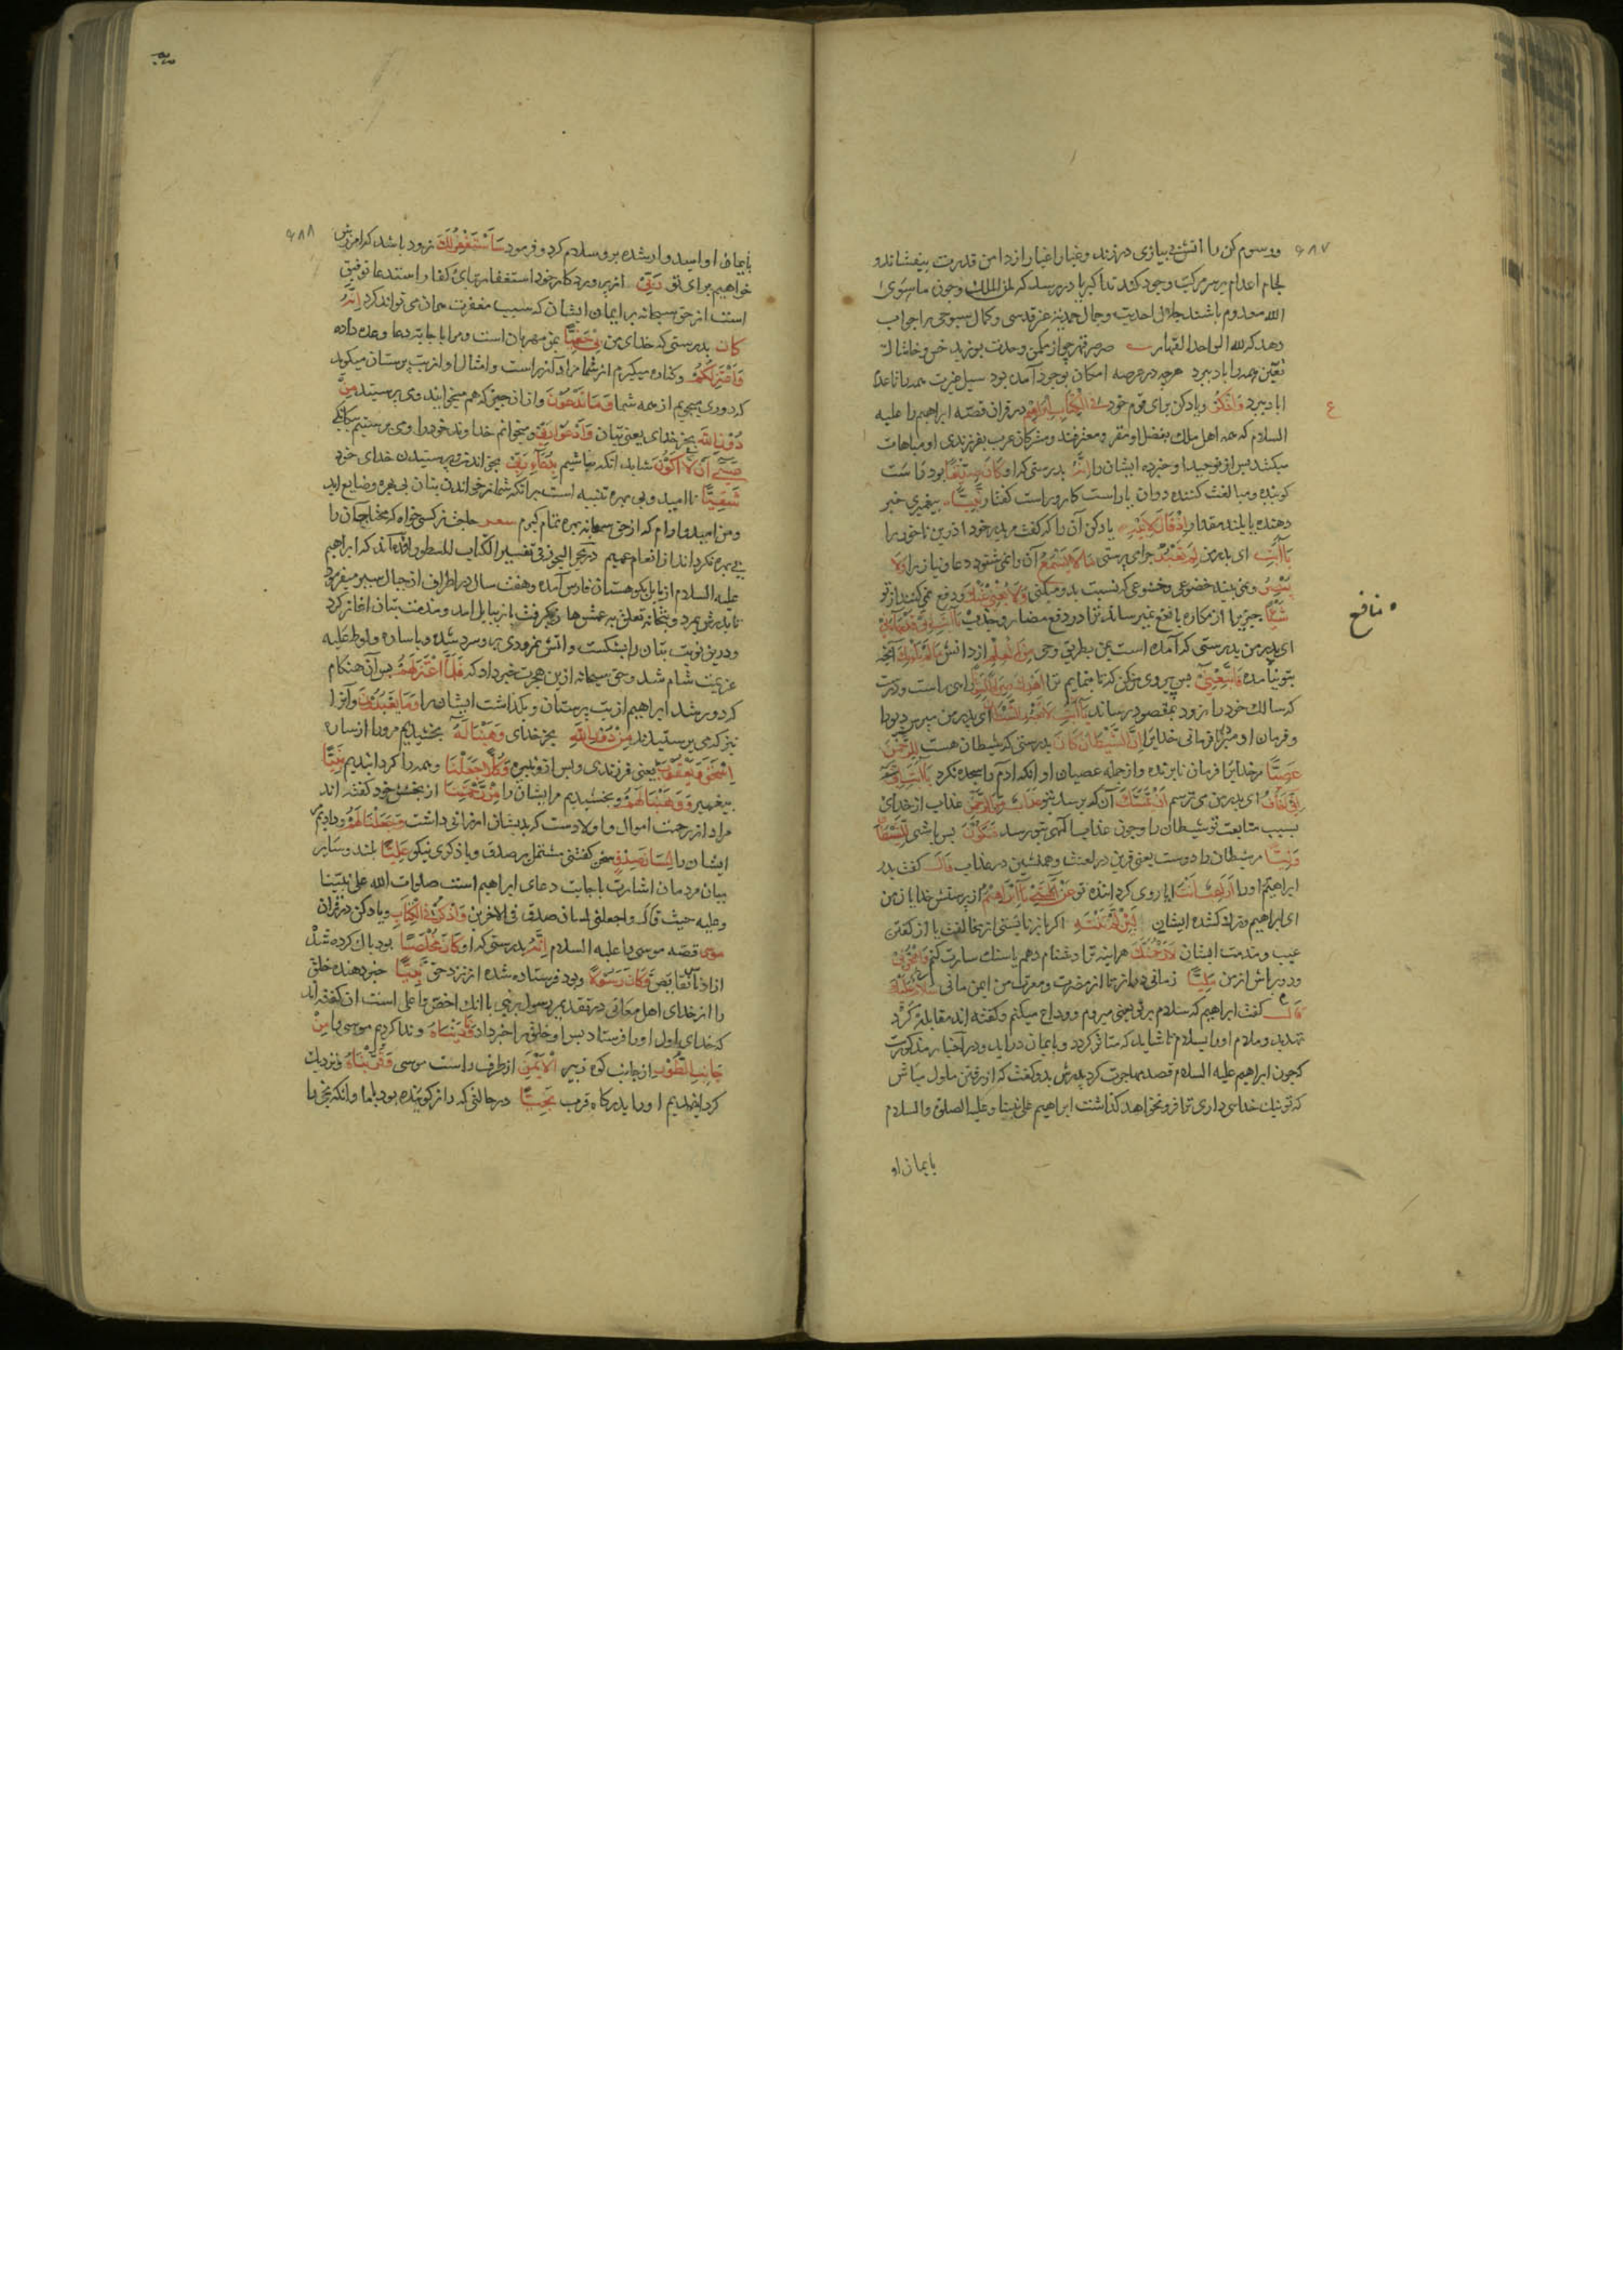 ۶۸۷
ورسوم کن را اتش بی نیازی در زند و غبار اغیار از دامن قدرت بیفشاند و
لجام اعدام بر سر مرکب وجود کند ندا کبریا در رسد که لمن الملک و چون ما سوی
الله معدوم باشند جلال احدیت و جمال صمدیت عز قدسی و کمال سبوحی را جواب
دهد که لله الواحد القهار صرصر قهر چو از مکمن وحدت بوزید خس و خاشاک
تعین همه را باد ببرد هرچه در عرصه امکان بوجود آمده بود سیل عزت همه را تا عدم
اباد ببرد وَاذْكُرْ و یاد کن برای قوم خود فِي الْكِتَابِ إِبْرَاهِيمَ در قران قصّه ابراهیم را علیه
السلام که همه اهل ملل بفضل او مقر و معترفند و مشرکان عرب بفرزندی او مباهات
میکنند پس از توحید او خبر ده ایشان را إِنَّهُ بدرستی که او كَانَ صِدِّيقًا بود راست
کوینده و مبالغت کننده دران یا راست کار و راست کفتار نَبِيًّا پیغمبری خبر
دهنده یا بلند مقدار إِذْ قَالَ لِأَبِيهِ یاد کن آن را که کفت مر پدر خود اذر بن ناحور را
يَا أَبَتِ ای پدر من لِمَ تَعْبُدُ چرا می پرستی مَا لَا يَسْمَعُ آن را نمی شنود دعا و نیاز ترا وَلَا
يُبْصِرُ و نمی بیند خضوعی و خشوعی که نسبت بدو میکنی وَلَا يُغْنِي عَنْكَ و دفع نمی کند از تو
شَيْئًا چیزی را از مکاره یا نفع نمیرساند ترا در دفع مضار و جذب يَا أَبَتِ إِنِّي قَدْ جَاءَنِي
ای پدر من بدرستی که آمده است بمن بطریق وحی مِنَ الْعِلْمِ از دانش مَا لَمْ يَأْتِكَ آنچه
بتو نیامده فَاتَّبِعْنِي پس پیروی من کن که تا بنمایم ترا أَهْدِكَ صِرَاطًا سَوِيًّا راهی راست و درست
که سالک خود را زود بمقصود رساند يَا أَبَتِ لَا تَعْبُدِ الشَّيْطَانَ ای پدر من مپرست دیو را
و فرمان او مبر در نافرمانی خدای را إِنَّ الشَّيْطَانَ كَانَ بدرستی که شیطان هست لِلرَّحْمَنِ
عَصِيًّا مر خدایرا فرمان نابرنده و از جمله عصیان او انکه ادم را سجده نکرد يَا أَبَتِ
إِنِّي أَخَافُ ای پدر من می ترسم أَنْ يَمَسَّكَ آن که برسد بتو عَذَابٌ مِنَ الرَّحْمَنِ عذاب از خدای
بسبب متابعت تو شیطان را و چون عذاب الهی بتو رسد فَتَكُونَ پس باشی لِلشَّيْطَانِ
وَلِيًّا مر شیطان را دوست یعنی قرین در لعنت و همنشین در عذاب قَالَ کفت پدر
ابراهیم او را أَرَاغِبٌ أَنْتَ ایا روی کرداننده تو عَنْ آلِهَتِي يَا إِبْرَاهِيمُ از پرستش خدایان من
ای ابراهیم و ترک کننده ایشان لَئِنْ لَمْ تَنْتَهِ اکر باز نایستی از مخالفت یا از کفتن
عیب و مذمت ایشان لَأَرْجُمَنَّكَ هراینه ترا دشنام دهم یا سنک سارت کنم وَاهْجُرْنِي
و دور باش از من مَلِيًّا زمانی دراز تا از مضرت و معرت من ایمن مانی سَلَامٌ عَلَيْكَ
قَالَ کفت ابراهیم که سلام بر تو یعنی میروم و وداع میکنم و کفته اند مقابله کرد
تهدید و ملام او را بسلام تا شاید که متاثر کردد و بایمان دراید و در اخبار مذکورست
که چون ابراهیم علیه السلام قصد مهاجرت کرد پدرش بدو کفت که از رفتن ملول مباش
که تو نیک خدایی داری ترا فرو نخواهد کذاشت ابراهیم علی نبینا و علیه الصلوة والسلام
بایمان او
ع
منافع
۶۸۸
بایمان او امیدوار شده برو سلام کرد و فرمود سَأَسْتَغْفِرُ لَكَ زود باشد که امرزش
خواهیم برای تو رَبِّي از پروردکار خود استغفار برای کفار استدعا توفیق
است از حق سبحانه بر ایمان ایشان که سبب مغفرت همان می تواند کرد إِنَّهُ
كَانَ بدرستی که خدای من بِي حَفِيًّا بمن مهربان است و مرا باجابت دعا وعده داده
وَأَعْتَزِلُكُمْ و کناره میکیرم از شما مراد آزر است و امثال او از بت پرستان میکوید
که دوری میجویم از همه شما وَمَا تَدْعُونَ و از ان چیز که هم میخوانید و می پرستید مِنْ
دُونِ اللَّهِ بجز خدای یعنی بتان وَأَدْعُو رَبِّي و میخوانم خداوند خود را و می پرستم بیکانکی
عَسَى أَنْ لَا أَكُونَ شاید انکه نباشم بِدُعَاءِ رَبِّي بخواندن و پرستیدن خدای خود
شَقِيًّا ناامید و بی بهره تنبیه است برانکه شما از خواندن بتان بی بهره و ضایع اید
و من امیدوارم که از حق سبحانه بهره تمام کیرم
بی بهره نکرداند از انعام عمیم در بحر الیحور فی تفسیر الکتاب المسطور اورده اند که ابراهیم
علیه السلام از بابل بکوهستان فارس آمده و هفت سال در اطراف ان جبال بسر میفرمود
تا پدرش بمرد و بتخانه تعلق به عمش هاران کرفت باز ببابل امد و مذمت بتان اغاز کرد
و درین نوبت بتان را بشکست و اتش نمرودی بدو سرد شده و با ساره و لوط علیه
عزیمت شام شد و حق سبحانه ازین هجرت خبر داد که فَلَمَّا اعْتَزَلَهُمْ پس آن هنکام
که دور شد ابراهیم از بت پرستان و بکذاشت ایشان را وَمَا يَعْبُدُونَ و آنرا
نیز که می پرستیدند مِنْ دُونِ اللَّهِ بجز خدای وَهَبْنَا لَهُ بخشیدیم مرورا از ساره
إِسْحَقَ وَيَعْقُوبَ یعنی فرزندی و پس ازو نبیره وَكُلًّا جَعَلْنَا و همه را کردانیدیم نَبِيًّا
پیغمبر وَوَهَبْنَا لَهُمْ و بخشیدیم مرایشان را مِنْ رَحْمَتِنَا از بخشش خود کفته اند
مراد از رحمت اموال و اولادست که بدیشان ارزانی داشت وَجَعَلْنَا لَهُمْ و دادیم
ایشان را لِسَانَ صِدْقٍ سخن کفتنی مشتمل بر صدق و یا ذکری نیکو عَلِيًّا بلند و سایر
بیان مردمان اشارت باجابت دعای ابراهیم است صلوات الله علی نبینا
و علیه حیث قال واجعلنی لسان صدق فی الاخرین وَاذْكُرْ فِي الْكِتَابِ و یاد کن در قران
مُوسَى قصّه موسی را علیه السلام إِنَّهُ بدرستی که او كَانَ مُخْلَصًا بود پاک کرده شد
از ادناس و نقایص وَكَانَ رَسُولًا و بود فرستاده شده از نزد حق نَبِيًّا خبر دهنده خلق
را از خدای اهل معانی در تقدیم رسول بر نبی باانکه اخص و اعلی است ان کفته اند
که خدای اول او را فرستاد پس او خلق را خبر داد وَنَادَيْنَاهُ و ندا کردیم موسی را مِنْ
جَانِبِ الطُّورِ از جانب کوه زبیر الْأَيْمَنِ از طرف راست موسی وَقَرَّبْنَاهُ و نزدیک
کردانیدیم او را بدرکاه قرب نَجِيًّا در حالتی که راز کوینده بود با ما و انکه نجی را